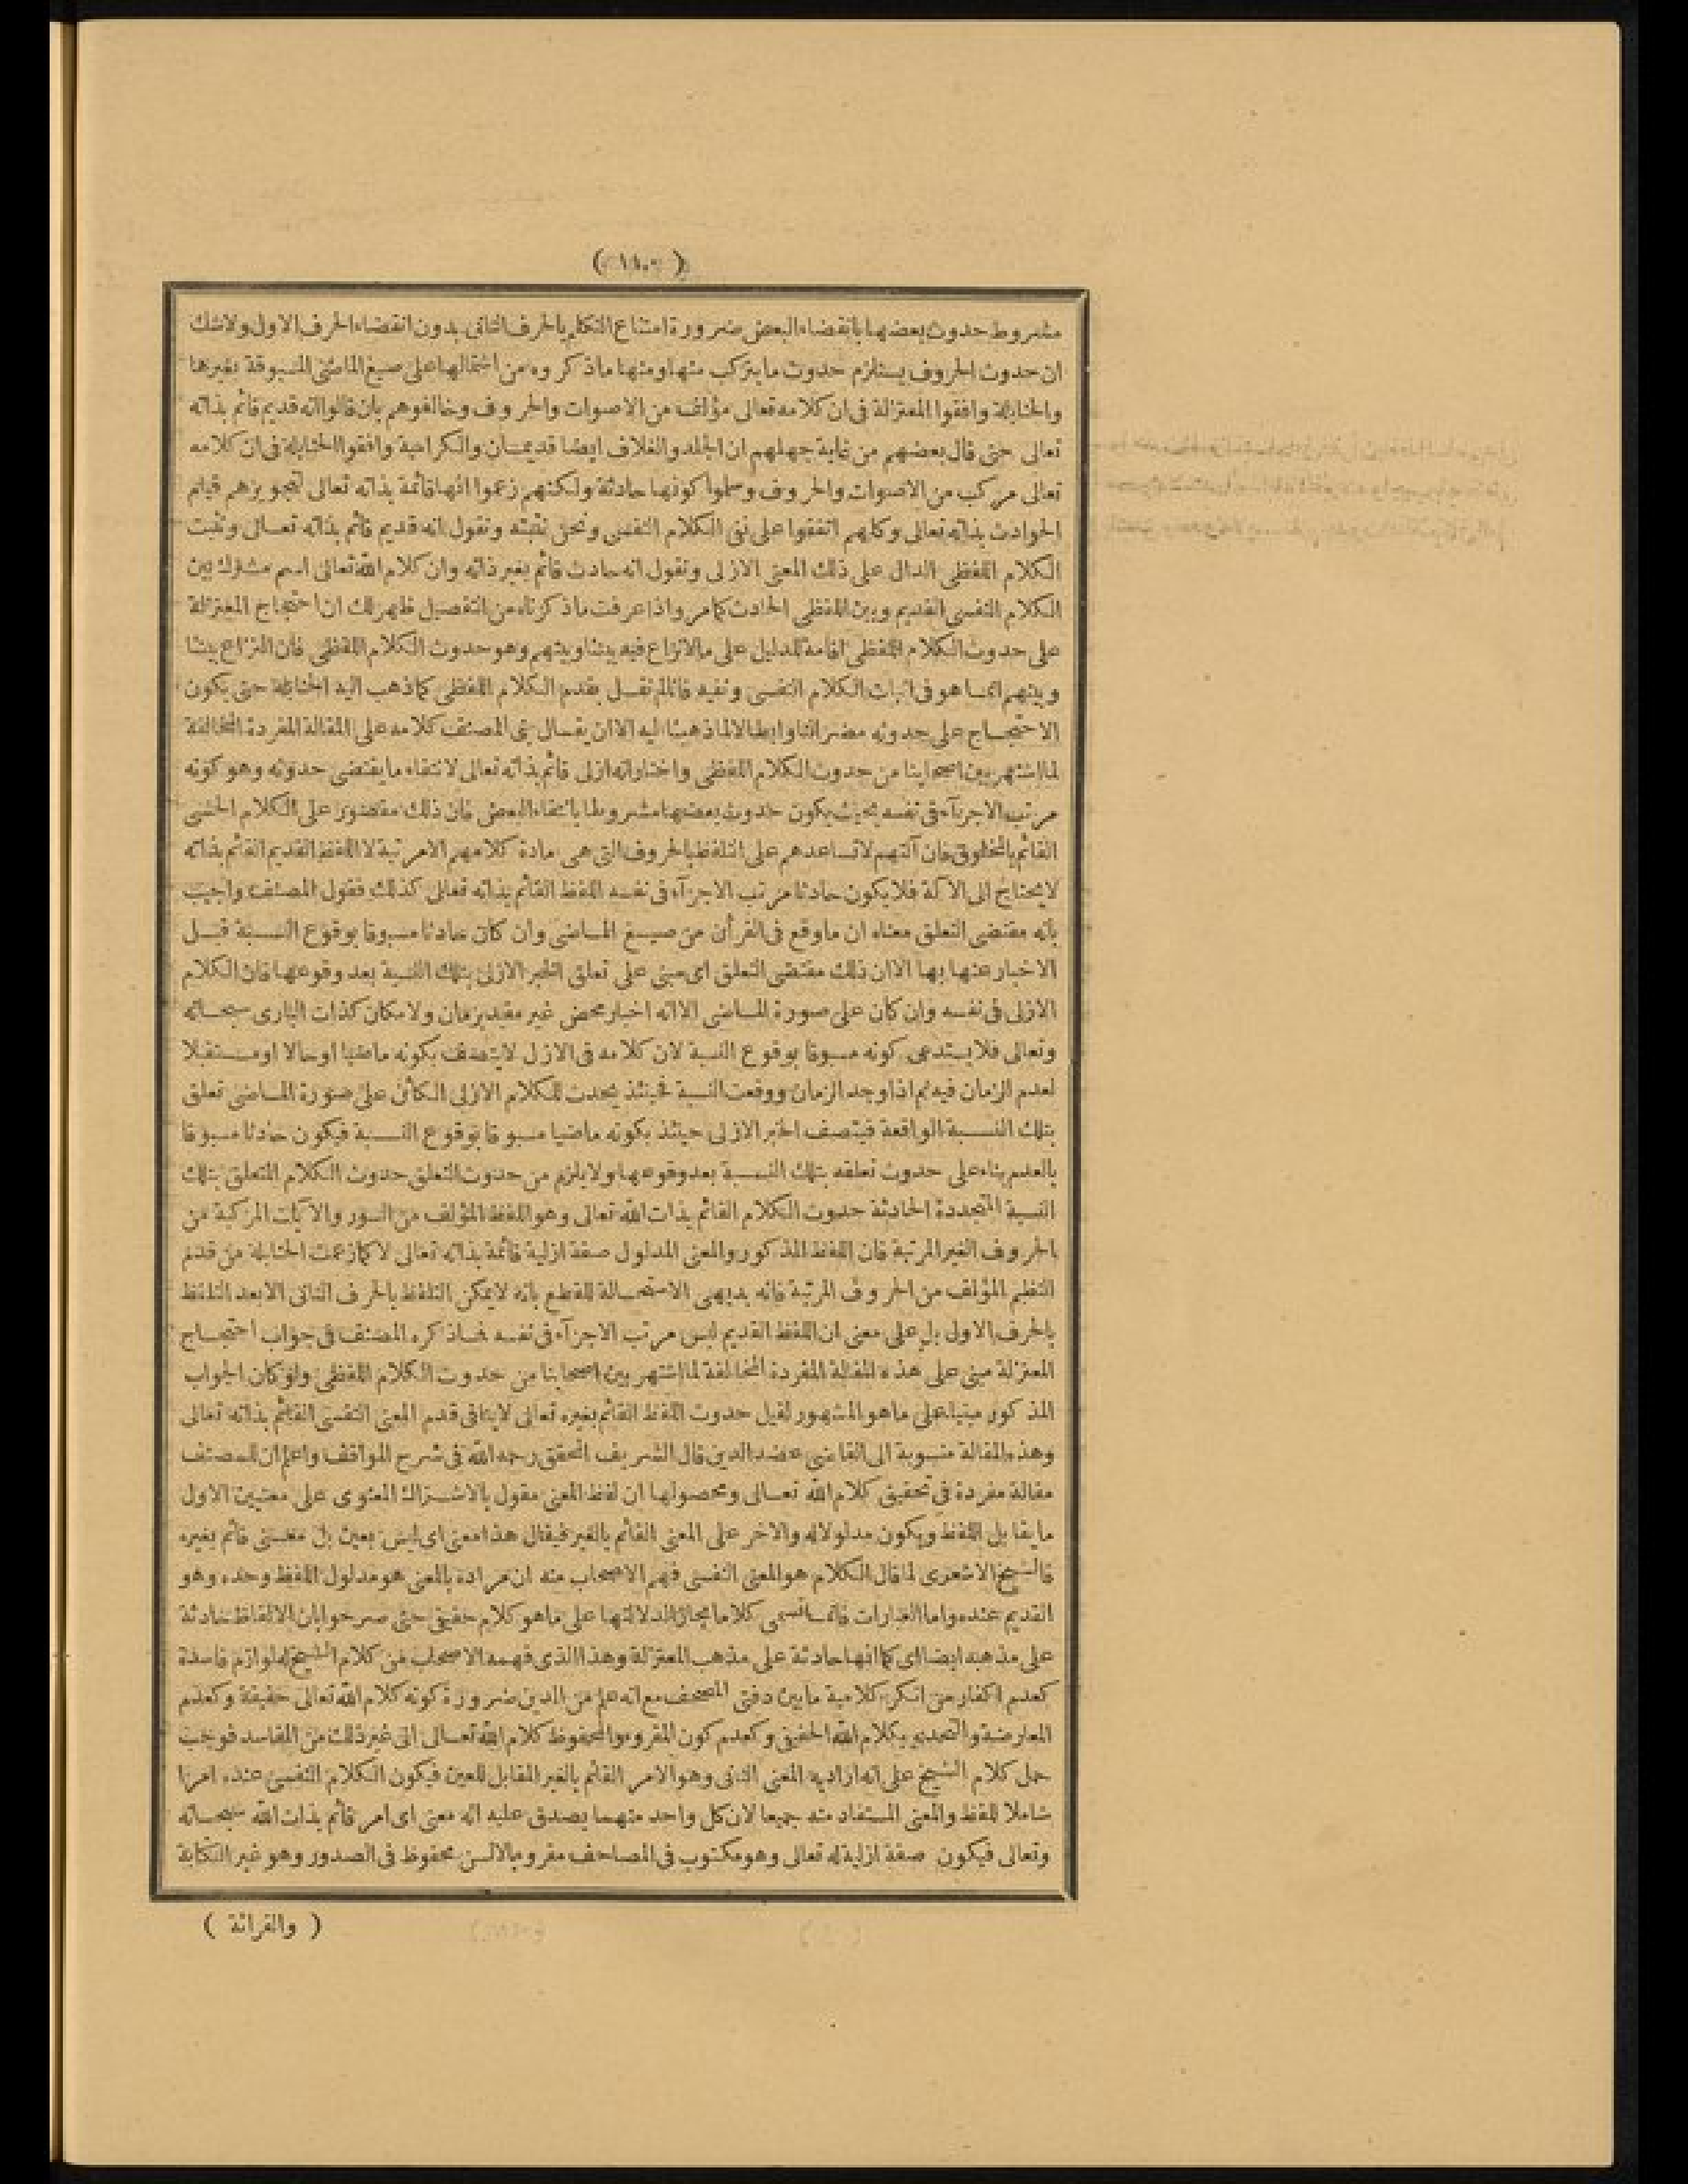 مشروط حدوث بعضها بانقضاء البعض ضرورة امتناع التكلم بالحرف الثانى بدون انقضاء الحرف الاول ولاشك
ان حدوث الحروف يستلزم حدوث ما يتركب منها ومنها ماذكروه من اشتمالها على صيغ الماضى المسبوقة بغيرها
والحنابلة وافقوا المعتزلة فى ان كلامه تعالى مؤلف من الاصوات والحروف وخالفوهم بان قالوا انه قديم قائم بذاته
تعالى حتى قال بعضهم من غاية جهلهم ان الجلد والغلاف ايضا قديمان والكرامية وافقوا الحنابلة فى ان كلامه
تعالى مركب من الاصوات والحروف وسلموا كونها حادثة ولكنهم زعموا انها قائمة بذاته تعالى لتجويزهم قيام
الحوادث بذاته تعالى وكلهم اتفقوا على نفى الكلام النفسى ونحن نثبته ونقول انه قديم قائم بذاته تعالى ونثبت
الكلام اللفظى الدال على ذلك المعنى الازلى ونقول انه حادث قائم بغير ذاته وان كلام الله تعالى اسم مشترك بين
الكلام النفسى القديم وبين اللفظى الحادث كمامر واذا عرفت ماذكرناه من التفصيل ظهر لك ان احتجاج المعتزلة
على حدوث الكلام اللفظى اقامة للدليل على مالانزاع فيه بيننا وبينهم وهو حدوث الكلام اللفظى فان النزاع بيننا
وبينهم انما هو فى اثبات الكلام النفسى ونفيه فانالم نقل بقدم الكلام اللفظى كماذهب اليه الحنابلة حتى يكون
الاحتجاج على حدوثه مضرالنا وابطالالماذهبنا اليه الاان يقال بنى المصنف كلامه على المقالة المفردة المخالفة
لمااشتهر بين اصحابنا من حدوث الكلام اللفظى واختارانه ازلى قائم بذاته تعالى لانتفاء مايقتضى حدوثه وهو كونه
مرتب الاجزآء فى نفسه بحيث يكون حدوث بعضها مشروطا بانتفاء البعض فان ذلك مقصور على الكلام الحسى
القائم بالمخلوق فان آلتهم لاتساعدهم على التلفظ بالحروف التى هى مادة كلامهم الامرتبة لااللفظ القديم القائم بذاته
لايحتاج الى الآلة فلايكون حادثا مرتب الاجزآء فى نفسه اللفظ القائم بذاته تعالى كذلك فقول المصنف واجيب
بانه مقتضى التعلق معناه ان ماوقع فى القرأن من صيغ الماضى وان كان حادثا مسبوقا بوقوع النسبة قبل
الاخبار عنها بها الاان ذلك مقتضى التعلق اى مبنى على تعلق الخبر الازلى بتلك النسبة بعد وقوعها فان الكلام
الازلى فى نفسه وان كان على صورة الماضى الاانه اخبار محض غير مقيد بزمان ولامكان كذات البارى سبحانه
وتعالى فلا يستدعى كونه مسبوقا بوقوع النسبة لان كلامه فى الازل لايتصف بكونه ماضيا اوحالا اومستقبلا
لعدم الزمان فيه ثم اذا وجد الزمان ووقعت النسبة فحينئذ يحدث للكلام الازلى الكائن على صورة الماضى تعلق
بتلك النسبة الواقعة فيتصف الخبر الازلى حينئذ بكونه ماضيا مسبوقا بوقوع النسبة فيكون حادثا مسبوقا
بالعدم بناء على حدوث تعلقه بتلك النسبة بعد وقوعها ولايلزم من حدوث التعلق حدوث الكلام المتعلق بتلك
النسبة المتجددة الحادثة حدوث الكلام القائم بذات الله تعالى وهو اللفظ المؤلف من السور والآيات المركبة من
الحروف الغير المرتبة فان اللفظ المذكور والمعنى المدلول صفة ازلية قائمة بذاته تعالى لاكمازعمت الحنابلة من قدم
النظم المؤلف من الحروف المرتبة فانه بديهى الاستحالة للقطع بانه لايمكن التلفظ بالحرف الثانى الابعد التلفظ
بالحرف الاول بل على معنى ان اللفظ القديم ليس مرتب الاجزآء فى نفسه فماذكره المصنف فى جواب احتجاج
المعتزلة مبنى على هذه المقالة المفردة المخالفة لمااشتهر بين اصحابنا من حدوث الكلام اللفظى ولوكان الجواب
المذكور مبنيا على ماهو المشهور لقيل حدوث اللفظ القائم بغيره تعالى لاينافى قدم المعنى النفسى القائم بذاته تعالى
وهذه المقالة منسوبة الى القاضى عضد الدين قال الشريف المحقق رحمه الله فى شرح المواقف واعلم ان للمصنف
مقالة مفردة فى تحقيق كلام الله تعالى ومحصولها ان لفظ المعنى مقول بالاشتراك المعنوى على معنيين الاول
مايقابل اللفظ ويكون مدلولاله والاخر على المعنى القائم بالغير فيقال هذا معنى اى ليس بعين بل معنى قائم بغيره
فالشيخ الاشعرى لماقال الكلام هو المعنى النفسى فهم الاصحاب منه ان مراده بالمعنى هو مدلول اللفظ وحده وهو
القديم عنده واما العبارات فانما تسمى كلاما مجازا لدلالتها على ماهو كلام حقيقى حتى صرحوا بان الالفاظ حادثة
على مذهبه ايضا اى كما انها حادثة على مذهب المعتزلة وهذا الذى فهمه الاصحاب من كلام الشيخ له لوازم فاسدة
كعدم اكفار من انكر كلامية مابين دفتى المصحف مع انه علم من الدين ضرورة كونه كلام الله تعالى حقيقة وكعدم
المعارضة والتحدى بكلام الله الحقيقى وكعدم كون المقروء والمحفوظ كلام الله تعالى الى غير ذلك من المفاسد فوجب
حمل كلام الشيخ على انه اراد به المعنى الثانى وهو الامر القائم بالغير المقابل للعين فيكون الكلام النفسى عنده امرا
شاملا للفظ والمعنى المستفاد منه جميعا لان كل واحد منهما يصدق عليه انه معنى اى امر قائم بذات الله سبحانه
وتعالى فيكون صفة ازلية له تعالى وهو مكتوب فى المصاحف مقروء بالالسن محفوظ فى الصدور وهو غير الكتابة
( والقرائة )